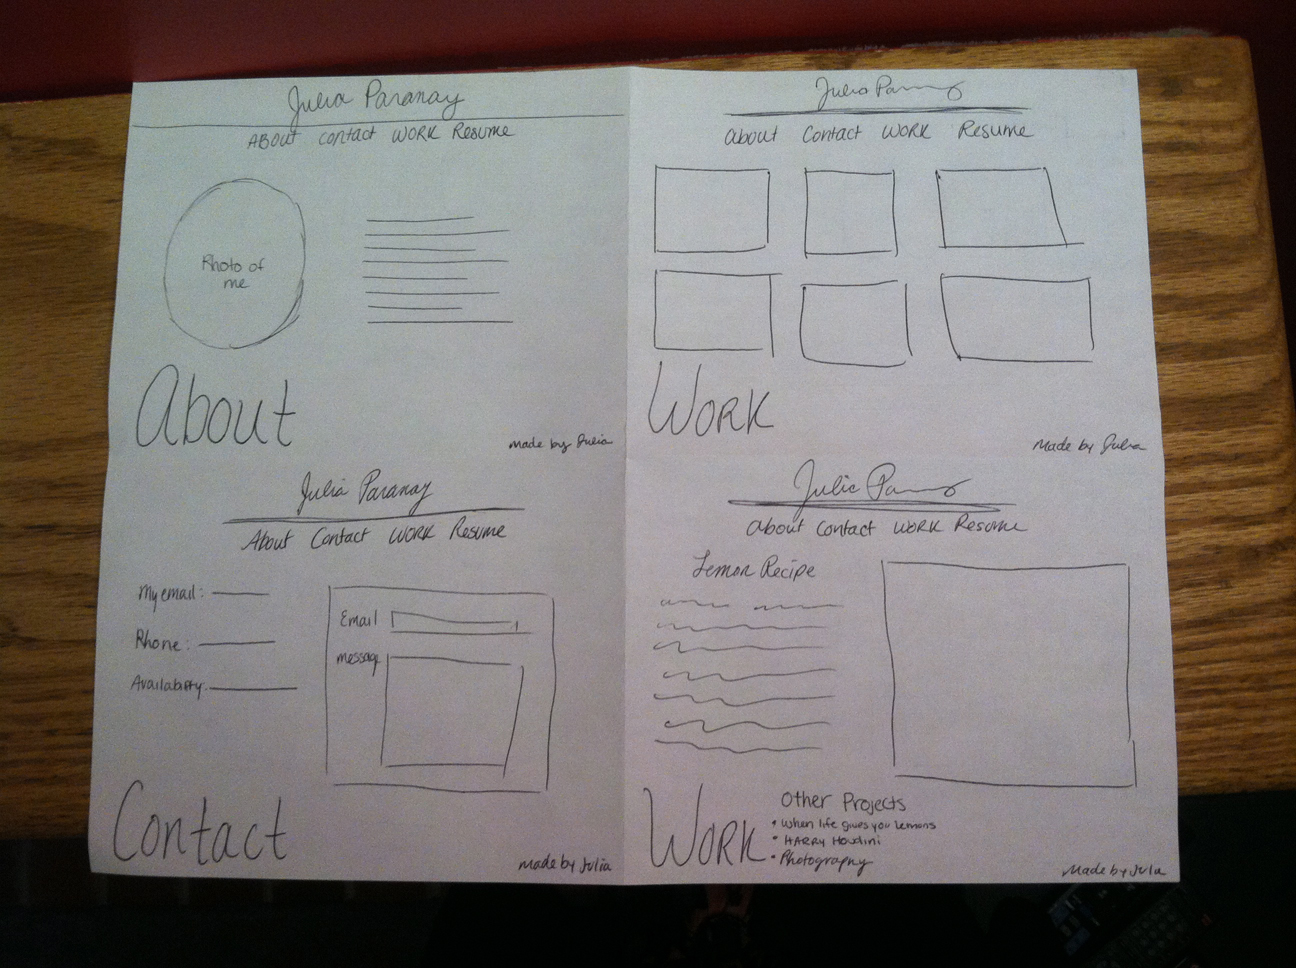 Julia Paranay
ABOUT Contact WORK Resume
Photo of
me
About
Made by Julia
Julia
About Contact WORK Resume
WORK
Made by Julia
Julia Paranay
About Contact WORK Resume
My email:
Phone:
Availability:
Email
message
Contact
made by Julia
Julia
About Contact WORK Resume
Lemon Recipe
WORK
Other Projects
• When life gives you lemons
• HARRY Houdini
• Photography
Made by Julia